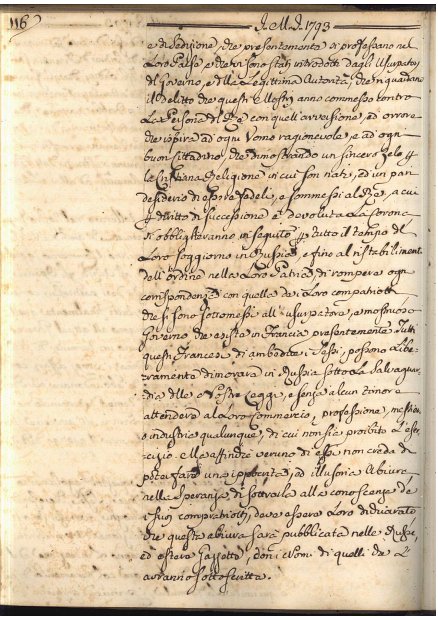 116
A.M.D. 1793
e di Sedizione, che presentemente si professano nel
Loro Paese e che vi sono stati introdotti dagli Usurpatori
del Governo, e della Legittima Autorità, che riguardano
il Delitto che questi Mostri anno commesso contro
La Persona del Re con quell'avversione, ed orrore
che ispira ad ogni Uomo ragionevole, e ad ogni
buon Cittadino, che dimostrando un sincero zelo p
la Cristiana Religione in cui son nati, ed un pari
desiderio di essere fedeli, e sommessi al Re, a cui
p diritto di successione è devoluta La Corona
si obbligheranno in seguito p tutto il tempo del
Loro soggiorno in Russia, e fino al ristabiliment
dell'ordine nella Loro Patria di rompere ogni
corrispondenza con quelle de i Loro compatriotti,
che si sono sottomessi all'usurpatore, e mostruoso
Governo che esiste in Francia presentemente. Tutti
questi Francesi di ambedue i Sessi, possono Libe-
ramente dimorare in Russia sotto La Salvaguar-
dia delle Nostre Leggi, e senza alcun timore
attendere al Loro commercio, professione, mestiere,
o industria qualunque, di cui non sia proibito l'eser-
cizio. E alla fin che veruno di essi non creda di
poter fare una ipocrita, ed illusoria Abiura
nella Speranza di sottrarla alla conoscenza de
i suoi compatriotti, deve essere Loro dichiarato
che questa abiura sarà pubblicata nelle Russe,
ed estere Gazzette, con i Nomi di quelli che L'
avranno sottoscritta.